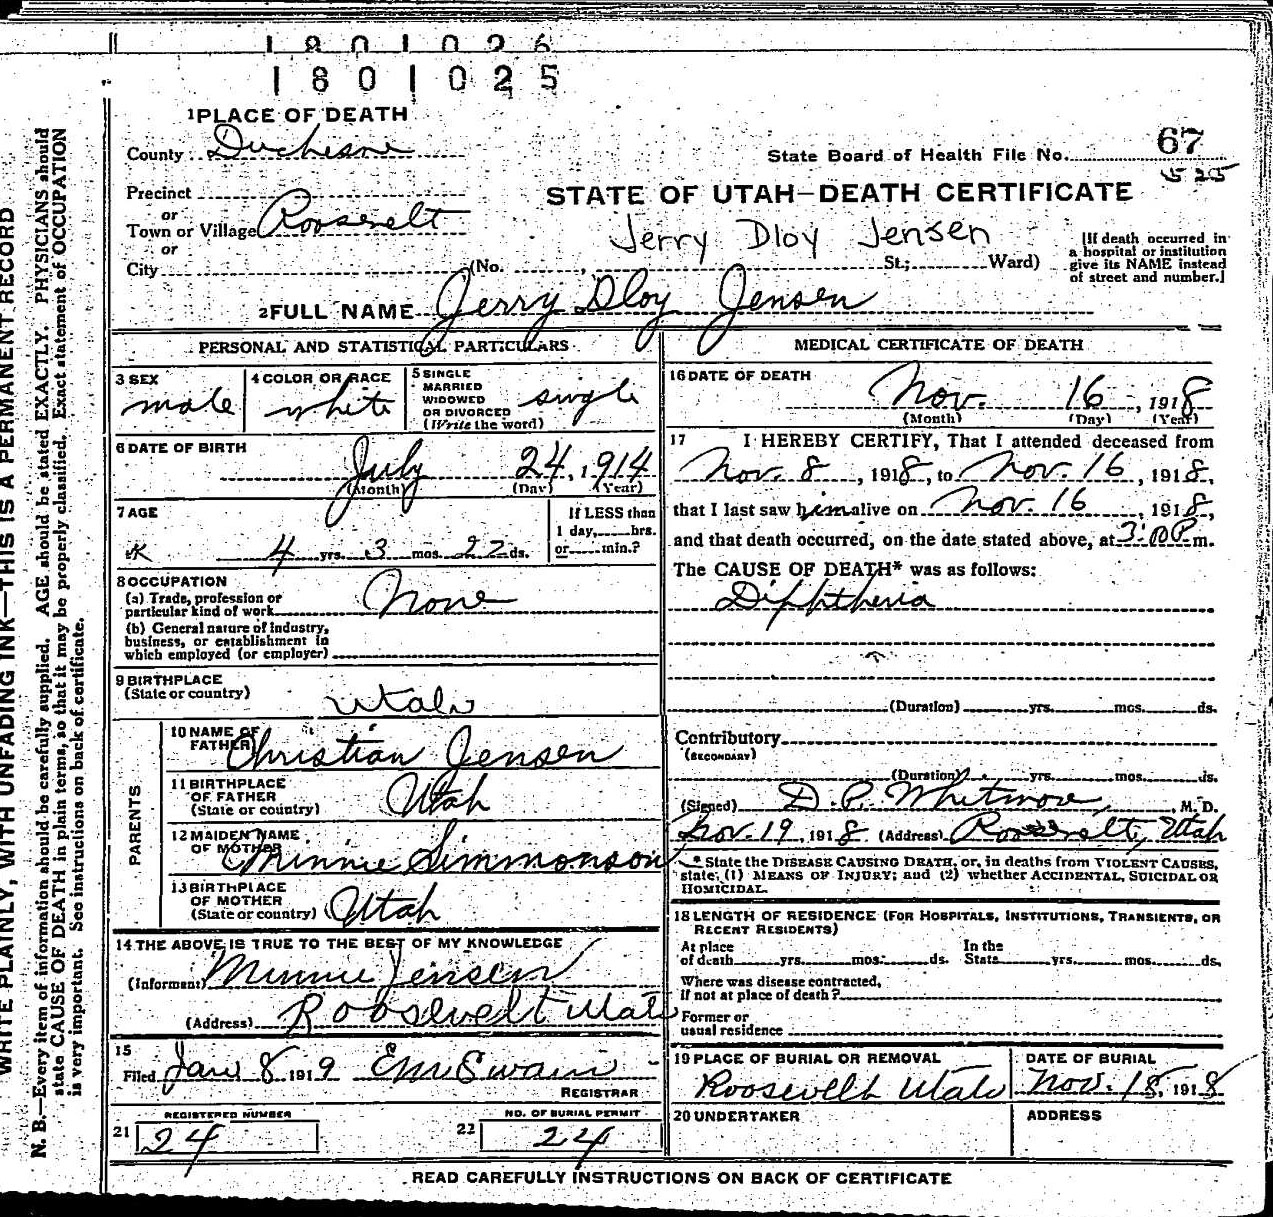 1801026
1801025
1 PLACE OF DEATH
County Duchisne
State Board of Health File No. 67
525
Precinct
or
Town or Village Roosevelt
or
City
STATE OF UTAH—DEATH CERTIFICATE
Jerry Dloy Jensen
(No. St.; Ward)
[If death occurred in
a hospital or institution
give its NAME instead
of street and number.]
2 FULL NAME Jerry Dloy Jensen
PERSONAL AND STATISTICAL PARTICULARS
3 SEX
male
4 COLOR OR RACE
white
5 SINGLE
MARRIED
WIDOWED
OR DIVORCED
(Write the word)
single
6 DATE OF BIRTH
July 24, 1914
(Month) (Day) (Year)
7 AGE
4 yrs. 3 mos. 22 ds.
If LESS than
1 day, hrs.
or min.?
8 OCCUPATION
(a) Trade, profession or
particular kind of work None
(b) General nature of industry,
business, or establishment in
which employed (or employer)
9 BIRTHPLACE
(State or country)
Utah
PARENTS
10 NAME OF
FATHER Christian Jensen
11 BIRTHPLACE
OF FATHER
(State or country) Utah
12 MAIDEN NAME
OF MOTHER Minnie Simmonson
13 BIRTHPLACE
OF MOTHER
(State or country) Utah
14 THE ABOVE IS TRUE TO THE BEST OF MY KNOWLEDGE
(Informant) Minnie Jensen
(Address) Roosevelt Utah
15
Filed Jan 8 1919 EmSwain
REGISTRAR
REGISTERED NUMBER
21 24
NO. OF BURIAL PERMIT
22 24
MEDICAL CERTIFICATE OF DEATH
16 DATE OF DEATH
Nov. 16, 1918
(Month) (Day) (Year)
17 I HEREBY CERTIFY, That I attended deceased from
Nov. 8, 1918, to Nov. 16, 1918,
that I last saw him alive on Nov. 16, 1918,
and that death occurred, on the date stated above, at 3:00 P.m.
The CAUSE OF DEATH* was as follows:
Diphtheria
(Duration) yrs. mos. ds.
Contributory
(SECONDARY)
(Duration) yrs. mos. ds.
(Signed) D. P. Whitmore, M. D.
Nov. 19, 1918 (Address) Roosevelt, Utah
* State the DISEASE CAUSING DEATH, or, in deaths from VIOLENT CAUSES,
state, (1) MEANS OF INJURY; and (2) whether ACCIDENTAL, SUICIDAL OR
HOMICIDAL.
18 LENGTH OF RESIDENCE (FOR HOSPITALS, INSTITUTIONS, TRANSIENTS, OR
RECENT RESIDENTS)
At place
of death yrs. mos. ds.
In the
State yrs. mos. ds.
Where was disease contracted,
if not at place of death?
Former or
usual residence
19 PLACE OF BURIAL OR REMOVAL
Roosevelt Utah
DATE OF BURIAL
Nov. 18, 1918
20 UNDERTAKER
ADDRESS
READ CAREFULLY INSTRUCTIONS ON BACK OF CERTIFICATE
WRITE PLAINLY, WITH UNFADING INK—THIS IS A PERMANENT RECORD
N. B.—Every item of information should be carefully supplied. AGE should be stated EXACTLY. PHYSICIANS should
state CAUSE OF DEATH in plain terms, so that it may be properly classified. Exact statement of OCCUPATION
is very important. See instructions on back of certificate.